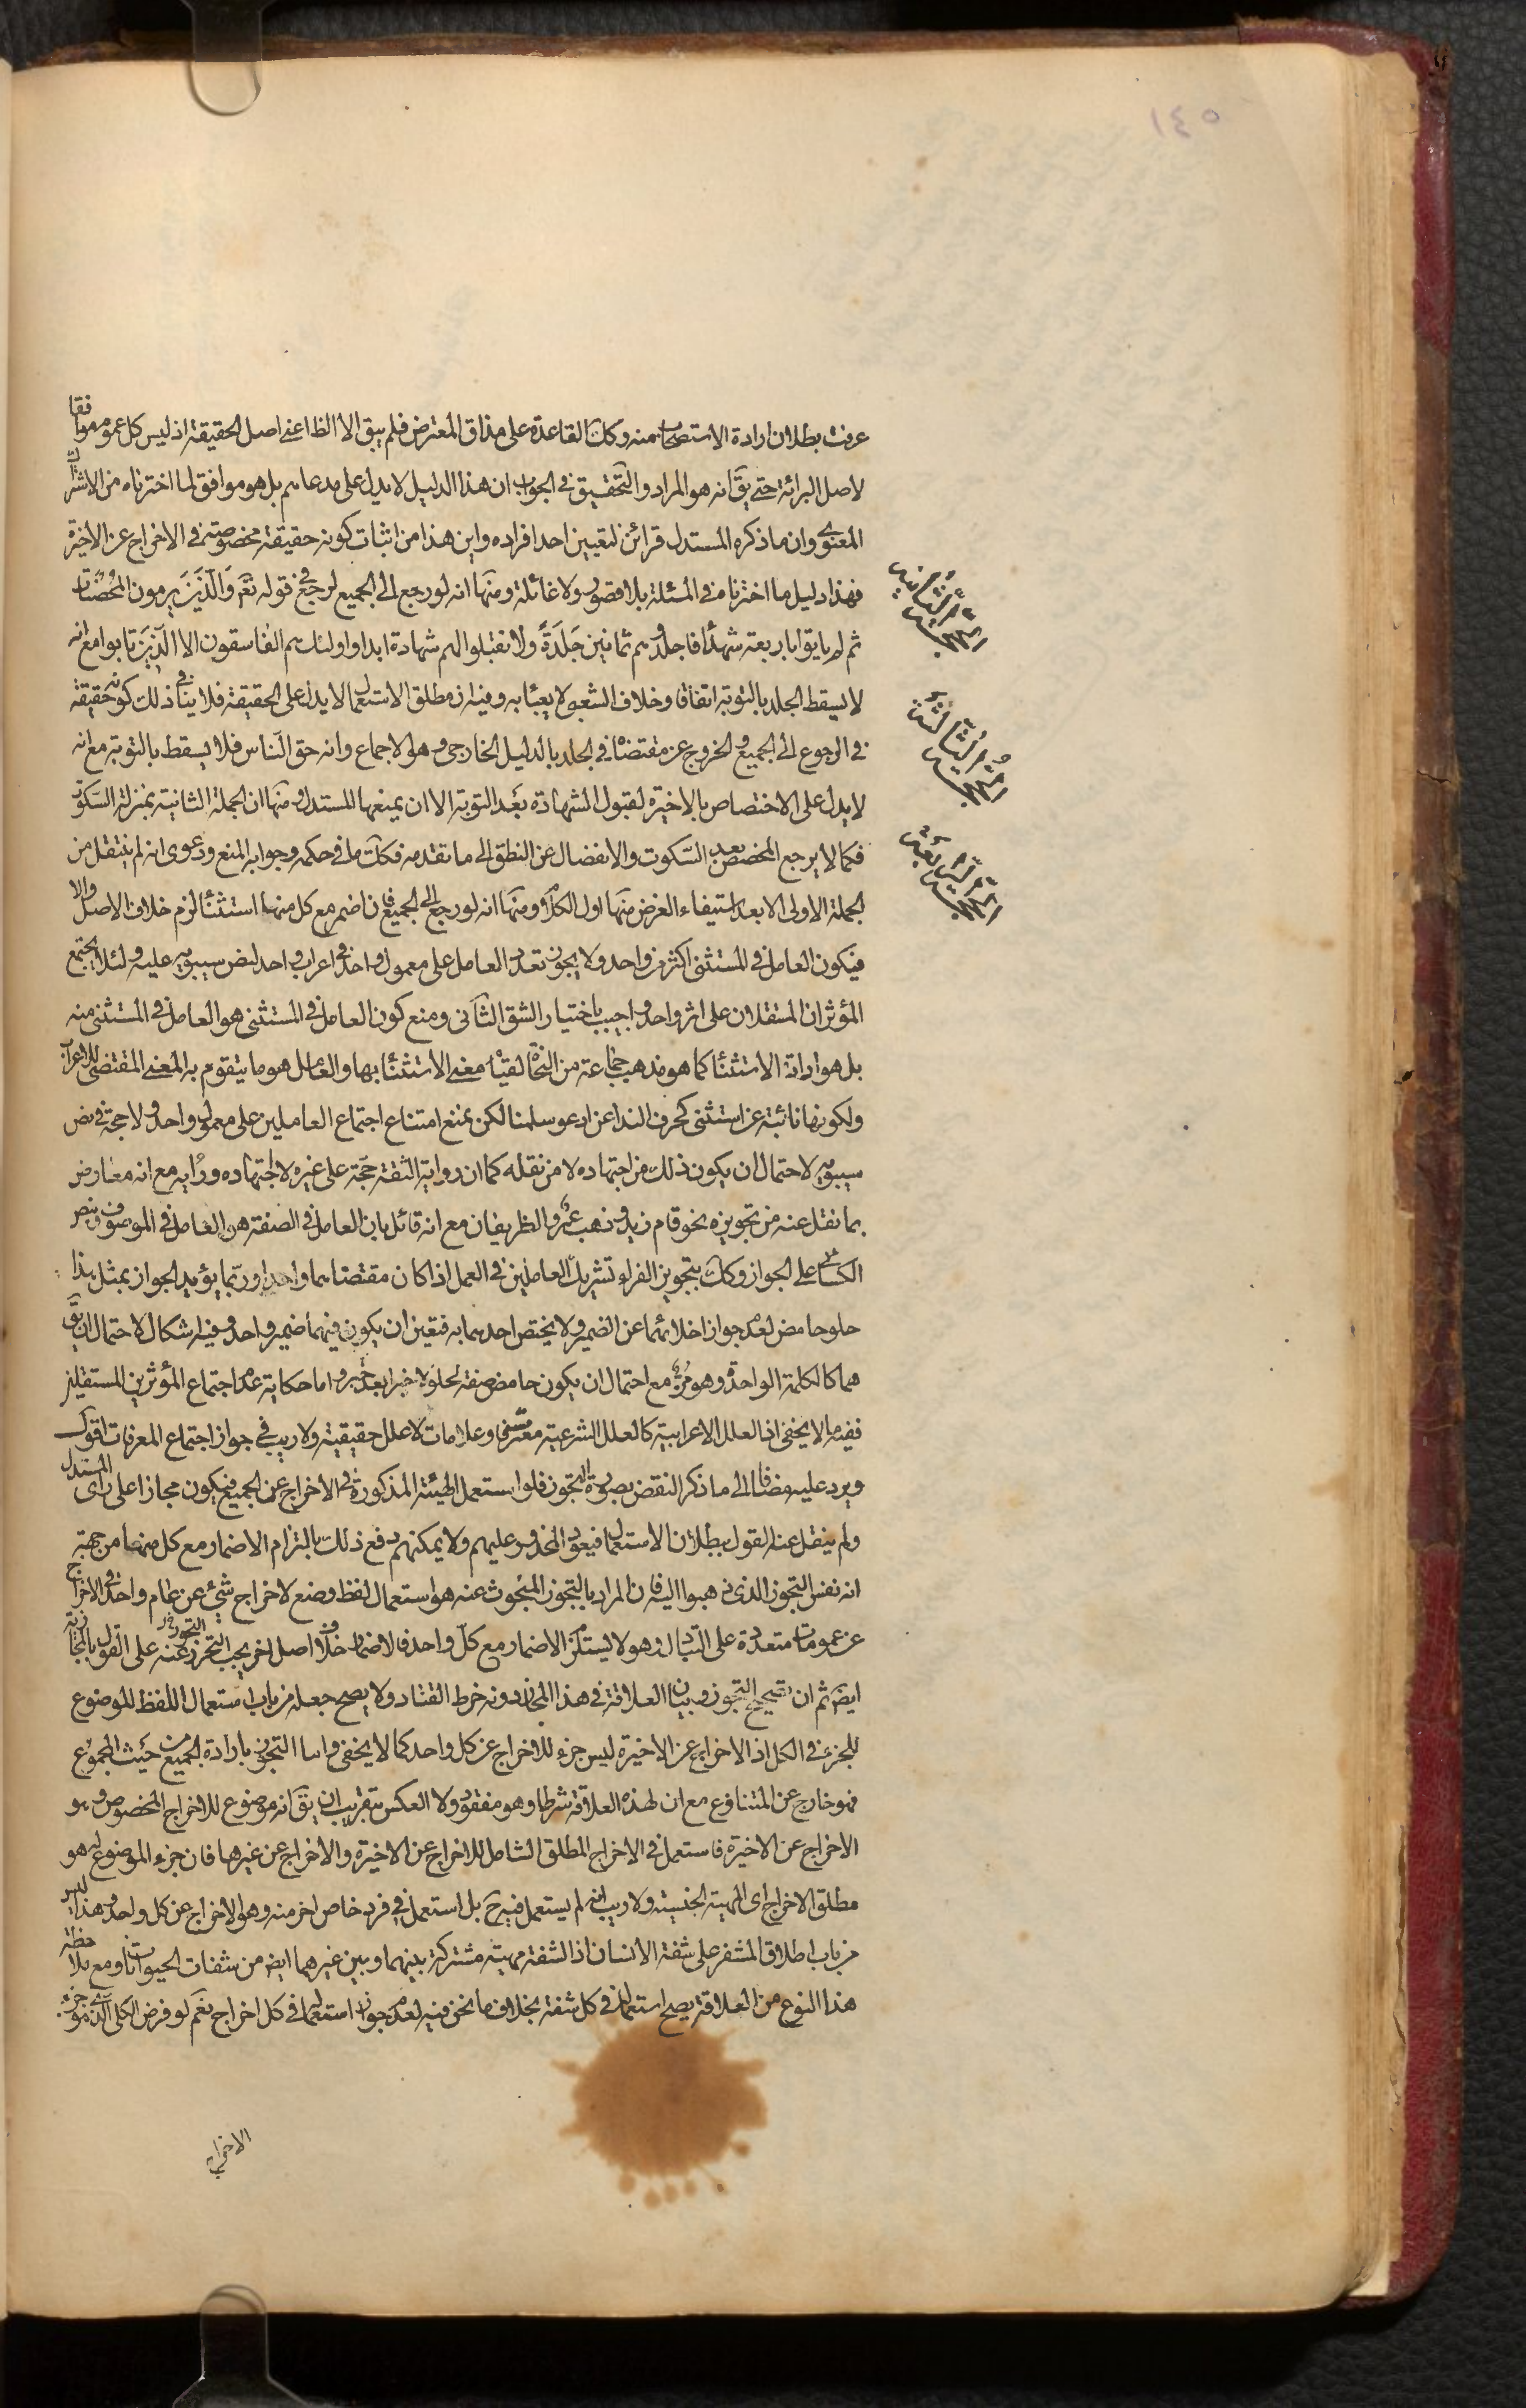 ١٤٥
عرفت بطلان ارادة الاستصحاب منه وكك القاعدة على مذاق المعترض فلم يبق الا الظاعنى اصل الحقيقة اذ ليس كل عموم موافقا
لاصل البرائة حتى يق انه هو المراد والتحقيق فى الجواب ان هذا الدليل لا يدل على مدعاهم بل هو موافق لما اخترناه من الاشتراك
المعنوى وان ما ذكره المستدل قرائن لتعيين احد افراده واين هذا من اثبات كونه حقيقة مخصوصة فى الاخراج عن الاخيرة
فهذا دليل ما اخترناه فى المسئلة بلا قصور ولا غائلة ومنها انه لو رجع الى الجميع لرجع فى قوله تعم وَالَّذينَ يرمون المُحْصَنات
ثم لم ياتوا باربعة شهدآء فاجلدوهم ثمانين جَلدَةً ولا تقبلوا لهم شهادة ابدا واولئك هم الفاسقون الا الّذينَ تابوا مع انه
لا يسقط الجلد بالتوبة اتفاقا وخلاف الشعبى لا يعبئا به وفيه ان مطلق الاستعمال لا يدل على الحقيقة فلا ينافى ذلك كونه حقيقة
فى الرجوع الى الجميع والخروج عن مقتضاه فى الجلد بالدليل الخارجى وهو الاجماع وانه حق الناس فلا يسقط بالتوبة مع انه
لا يدل على الاختصاص بالاخيرة لقبول الشهادة بعد التوبة الا ان يمنعها المستدل ومنها ان الجملة الثانية بمنزلة السكوت
فكما لا يرجع المخصص بعد السكوت والانفصال عن النطق الى ما تقدمه فكك ما فى حكمه وجوابه المنع ودعوى انه لم ينتقل من
الجملة الاولى الا بعد استيفاء الغرض منها اول الكلام ومنها انه لو رجع الى الجميع فان اضمر مع كل منها استثناء لزم خلاف الاصل والا
فيكون العامل فى المستثنى اكثر من واحد ولا يجوز تعدد العامل على معمول واحد فى اعراب واحد لنص سيبويه عليه ولئلا يجتمع
المؤثران المستقلان على اثر واحد واجيب باختيار الشق الثانى ومنع كون العامل فى المستثنى هو العامل فى المستثنى منه
بل هو اداة الاستثناء كما هو مذهب جماعة من النحاة لقيام معنى الاستثناء بها والعامل هو ما يتقوم به المعنى المقتضى للاعراب
ولكونها نائبة عن استثنى كحرف الندا عن ادعو سلمنا لكن نمنع امتناع اجتماع العاملين على معمول واحد ولا حجة فى نص
سيبويه لاحتمال ان يكون ذلك من اجتهاده لا من نقله كما ان رواية الثقة حجة على غيره لا اجتهاده ورأيه مع انه معارض
بما نقل عنه من تجويزه نحو قام زيد وذهب عمرو الظريفان مع انه قائل بان العامل فى الصفة هو العامل فى الموصوف وبنص
الكسائى على الجواز وكك بتجويز الفراء تشريك العاملين فى العمل اذا كان مقتضاهما واحدا وربّما يؤيد الجواز بمثل هذا
حلو حامض لعدم جواز اخلائهما عن الضمير ولا يختص احدهما به فتعين ان يكون فيهما ضمير واحد وفيه اشكال لاحتمال ان يق
هما كالكلمة الواحدة وهو مزّ مع احتمال ان يكون حامض صفة لحلو لا خبرا بعد خبر واما حكاية عدم اجتماع المؤثرين المستقلين
ففيه ما لا يخفى اذ العلل الاعرابية كالعلل الشرعية معرفات وعلامات لا علل حقيقية ولا ريب فى جواز اجتماع المعرفات اقول
ويرد عليه مضافا الى ما ذكر النقض بصورة التجوز فلو استعمل الهيئة المذكورة فى الاخراج عن الجميع فيكون مجازا على راى المستدل
ولم ينقل عنه القول ببطلان الاستعمال فيعود المحذور عليهم ولا يمكنهم دفع ذلك بالتزام الاضمار مع كل منها من جهة
انه نفس التجوز الذى ذهبوا اليه فان المراد بالتجوز المبحوث عنه هو استعمال لفظ وضع لاخراج شئ عن عام واحد فى الاخراج
عن عمومات متعددة على التبادل وهو لا يستلزم الاضمار مع كل واحد فالاضمار خلاف اصل اخر يجب التحرز عنه على القول بالمجازية
ايضا ثم ان تصحيح التجوز وبيان العلاقة فى هذا المجاز دونه خرط القتاد ولا يصح جعله من باب استعمال اللفظ الموضوع
للجزء فى الكل اذ الاخراج عن الاخيرة ليس جزء للاخراج عن كل واحد كما لا يخفى واما التجوز بارادة الجميع من حيث المجموع
فهو خارج عن المتنازع مع ان لهذه العلاقة شرطا وهو مفقود ولا العكس بتقريب ان يق انه موضوع للاخراج المخصوص وهو
الاخراج عن الاخيرة فاستعمل فى الاخراج المطلق الشامل للاخراج عن الاخيرة والاخراج عن غيرها فان جزء الموضوع له هو
مطلق الاخراج اى المهية الجنسية ولا ريب انه لم يستعمل فيه ح بل استعمل فى فرد خاص اخر منه وهو الاخراج عن كل واحد وهذا ليس
من باب اطلاق المشفر على شفة الانسان اذ الشفة مهية مشتركة بينهما وبين غيرهما ايض من شفات الحيوانات ومع ملاحظة
هذا النوع من العلاقة يصح استعماله فى كل شفة بخلاف ما نحن فيه لعدم جواز استعماله فى كل اخراج نعم لو فرض الكلى الذى هو جزء
الاخراج
الحجّة الثّانية
الحجّة الثّالثة
الحجّة الرّابعة